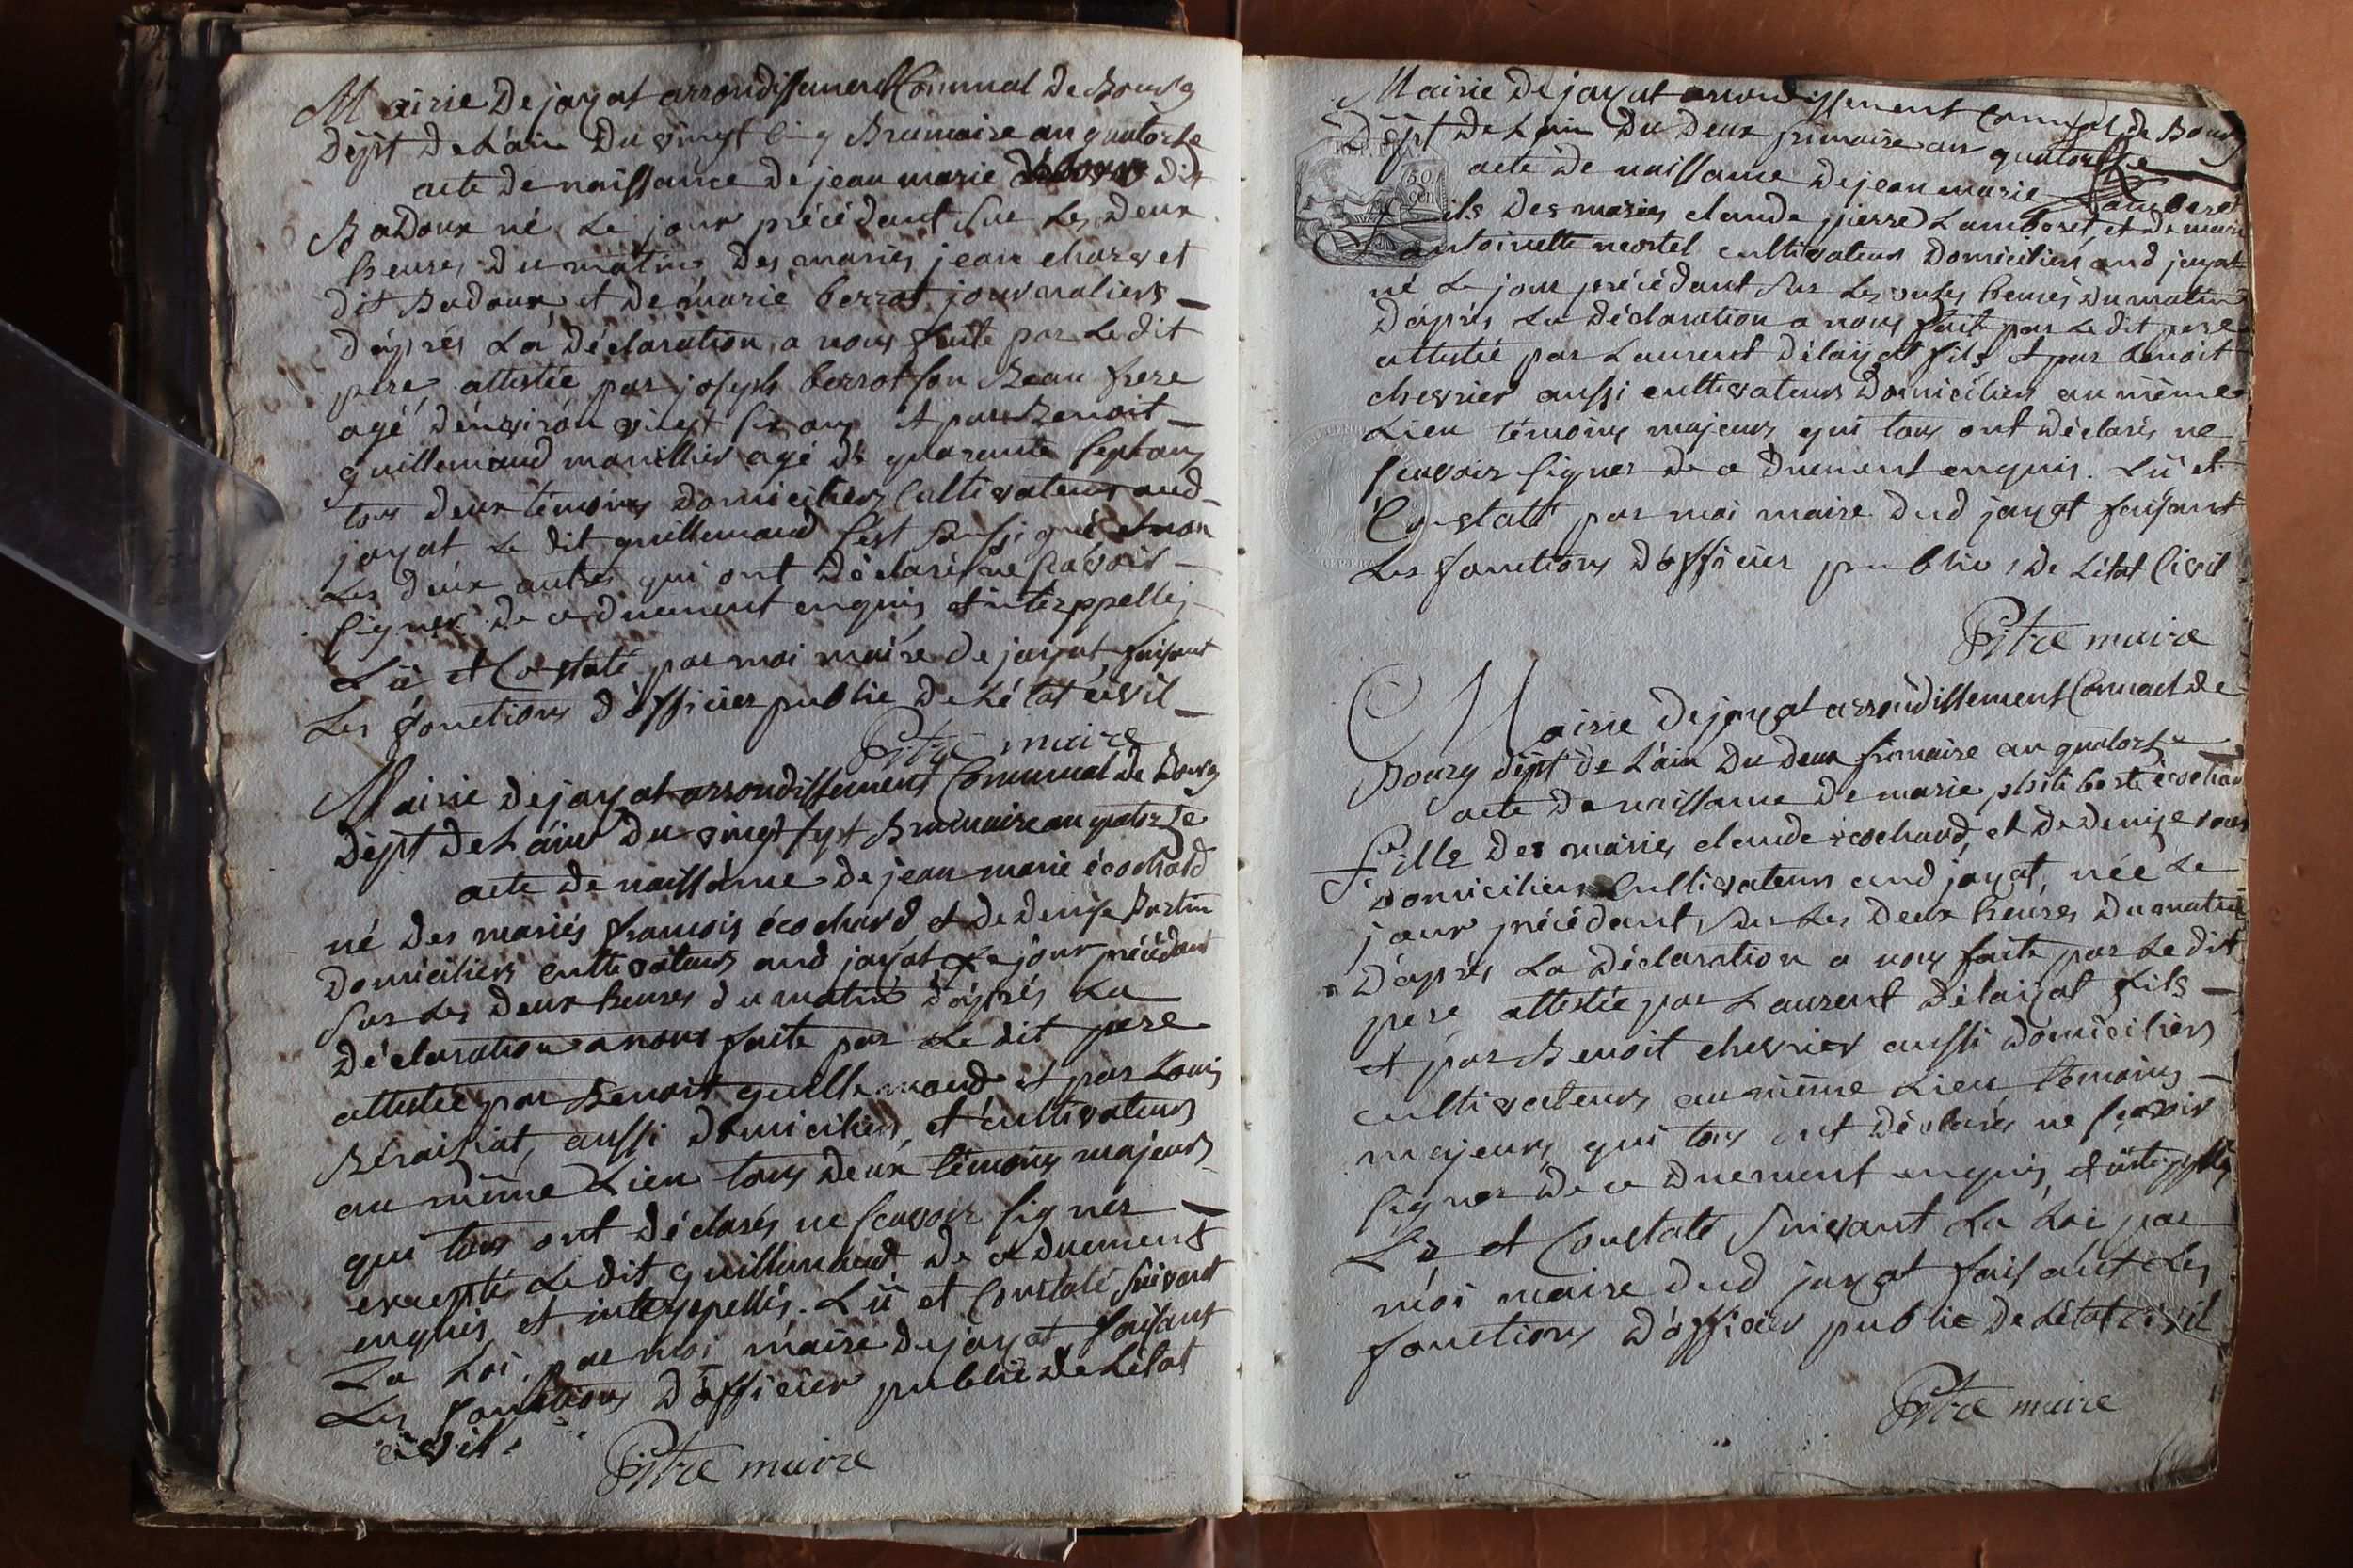 Mairie de jayat arrondissement Communal de Bourg
dépt de L'ain du vingt cinq Brumaire an quatorze
acte de naissance de jean marie dit
Badoux né Le jour précédant sur Les deux
heures du matin des mariés jean charvet
dit Badoux et de marie berrot journaliers
d'après La déclaration a nous faite par Le dit
pere attestée par joseph berrot son Beau frere
agé d'environ vingt six ans et par Benoit
guillemaud agé de quarante sept ans
tous deux témoins domiciliers Cultivateurs aud
jayat Le dit guillemaud s'est soussigné et non
Les deux autres qui ont déclarés ne scavoir
signer de ce duement enquis et interppellés
Lû et Constaté par moi maire de jayat faisant
Les fonctions d'officier public de L'état civil
Pitre maire
Mairie de jayat arrondissement Communal de Bourg
dépt de L'ain du vingt sept Brumaire an quatorze
acte de naissance de jean marie écochard
né des mariés francois écochard et de denise Burtin
domiciliers cultivateurs aud jayat Le jour précédant
sur Les deux heures du matin d'après La
déclaration a nous faite par Le dit pere
attestée par Benoit guillemaud et par Louis
Béraisiat, aussi domiciliers, et cultivateurs
au même Lieu tous deux témoins majeurs
qui tous ont déclarés ne scavoir signer
exceptés Le dit guillemaud de ce duement
enquis et interppellés. Lû et Constaté suivant
La Loi par moi maire de jayat faisant
Les fonctions d'officier public de L'état
civil.
Pitre maire
Mairie de jayat arrondissement Communal de Bourg
dépt de Lain du deux frimaire an quatorze
acte de naissance de jean marie Lamberet
fils des mariés claude pierre Lamberet, et de marie
antoinette mortel cultivateurs domiciliers aud jayat
né Le jour précédant sur Les onzes heures du matin
d'après La déclaration a nous faite par Le dit pere
attestée par Laurent délaijat fils et par Benoit
chevrier aussi cultivateurs domiciliers au même
Lieu témoins majeurs qui tous ont déclarés ne
scavoir signer de ce duement enquis. Lû et
Constaté par moi maire dud jayat faisant
Les fonctions d'officier public de L'état Civil
Pitre maire
Mairie de jayat arrondissement Communal de
Bourg dépt de L'ain du deux frimaire an quatorze
acte de naissance de marie philiberte écochard
fille des mariés claude écochard, et de denise
domiciliers Cultivateurs aud jayat, née Le
jour précédant, sur Les deux heures du matin
d'après La déclaration a nous faite par Le dit
pere attestée par Laurent délaijat fils
et par Benoit chevrier aussi domiciliers
cultivateurs au même Lieu témoins
majeurs qui tous ont déclarés ne scavoir
signer de ce duement enquis, et interppellés
Lû et Constaté suivant La Loi par
moi maire dud jayat faisant Les
fonctions d'officier public de L'état civil
Pitre maire
50
cen